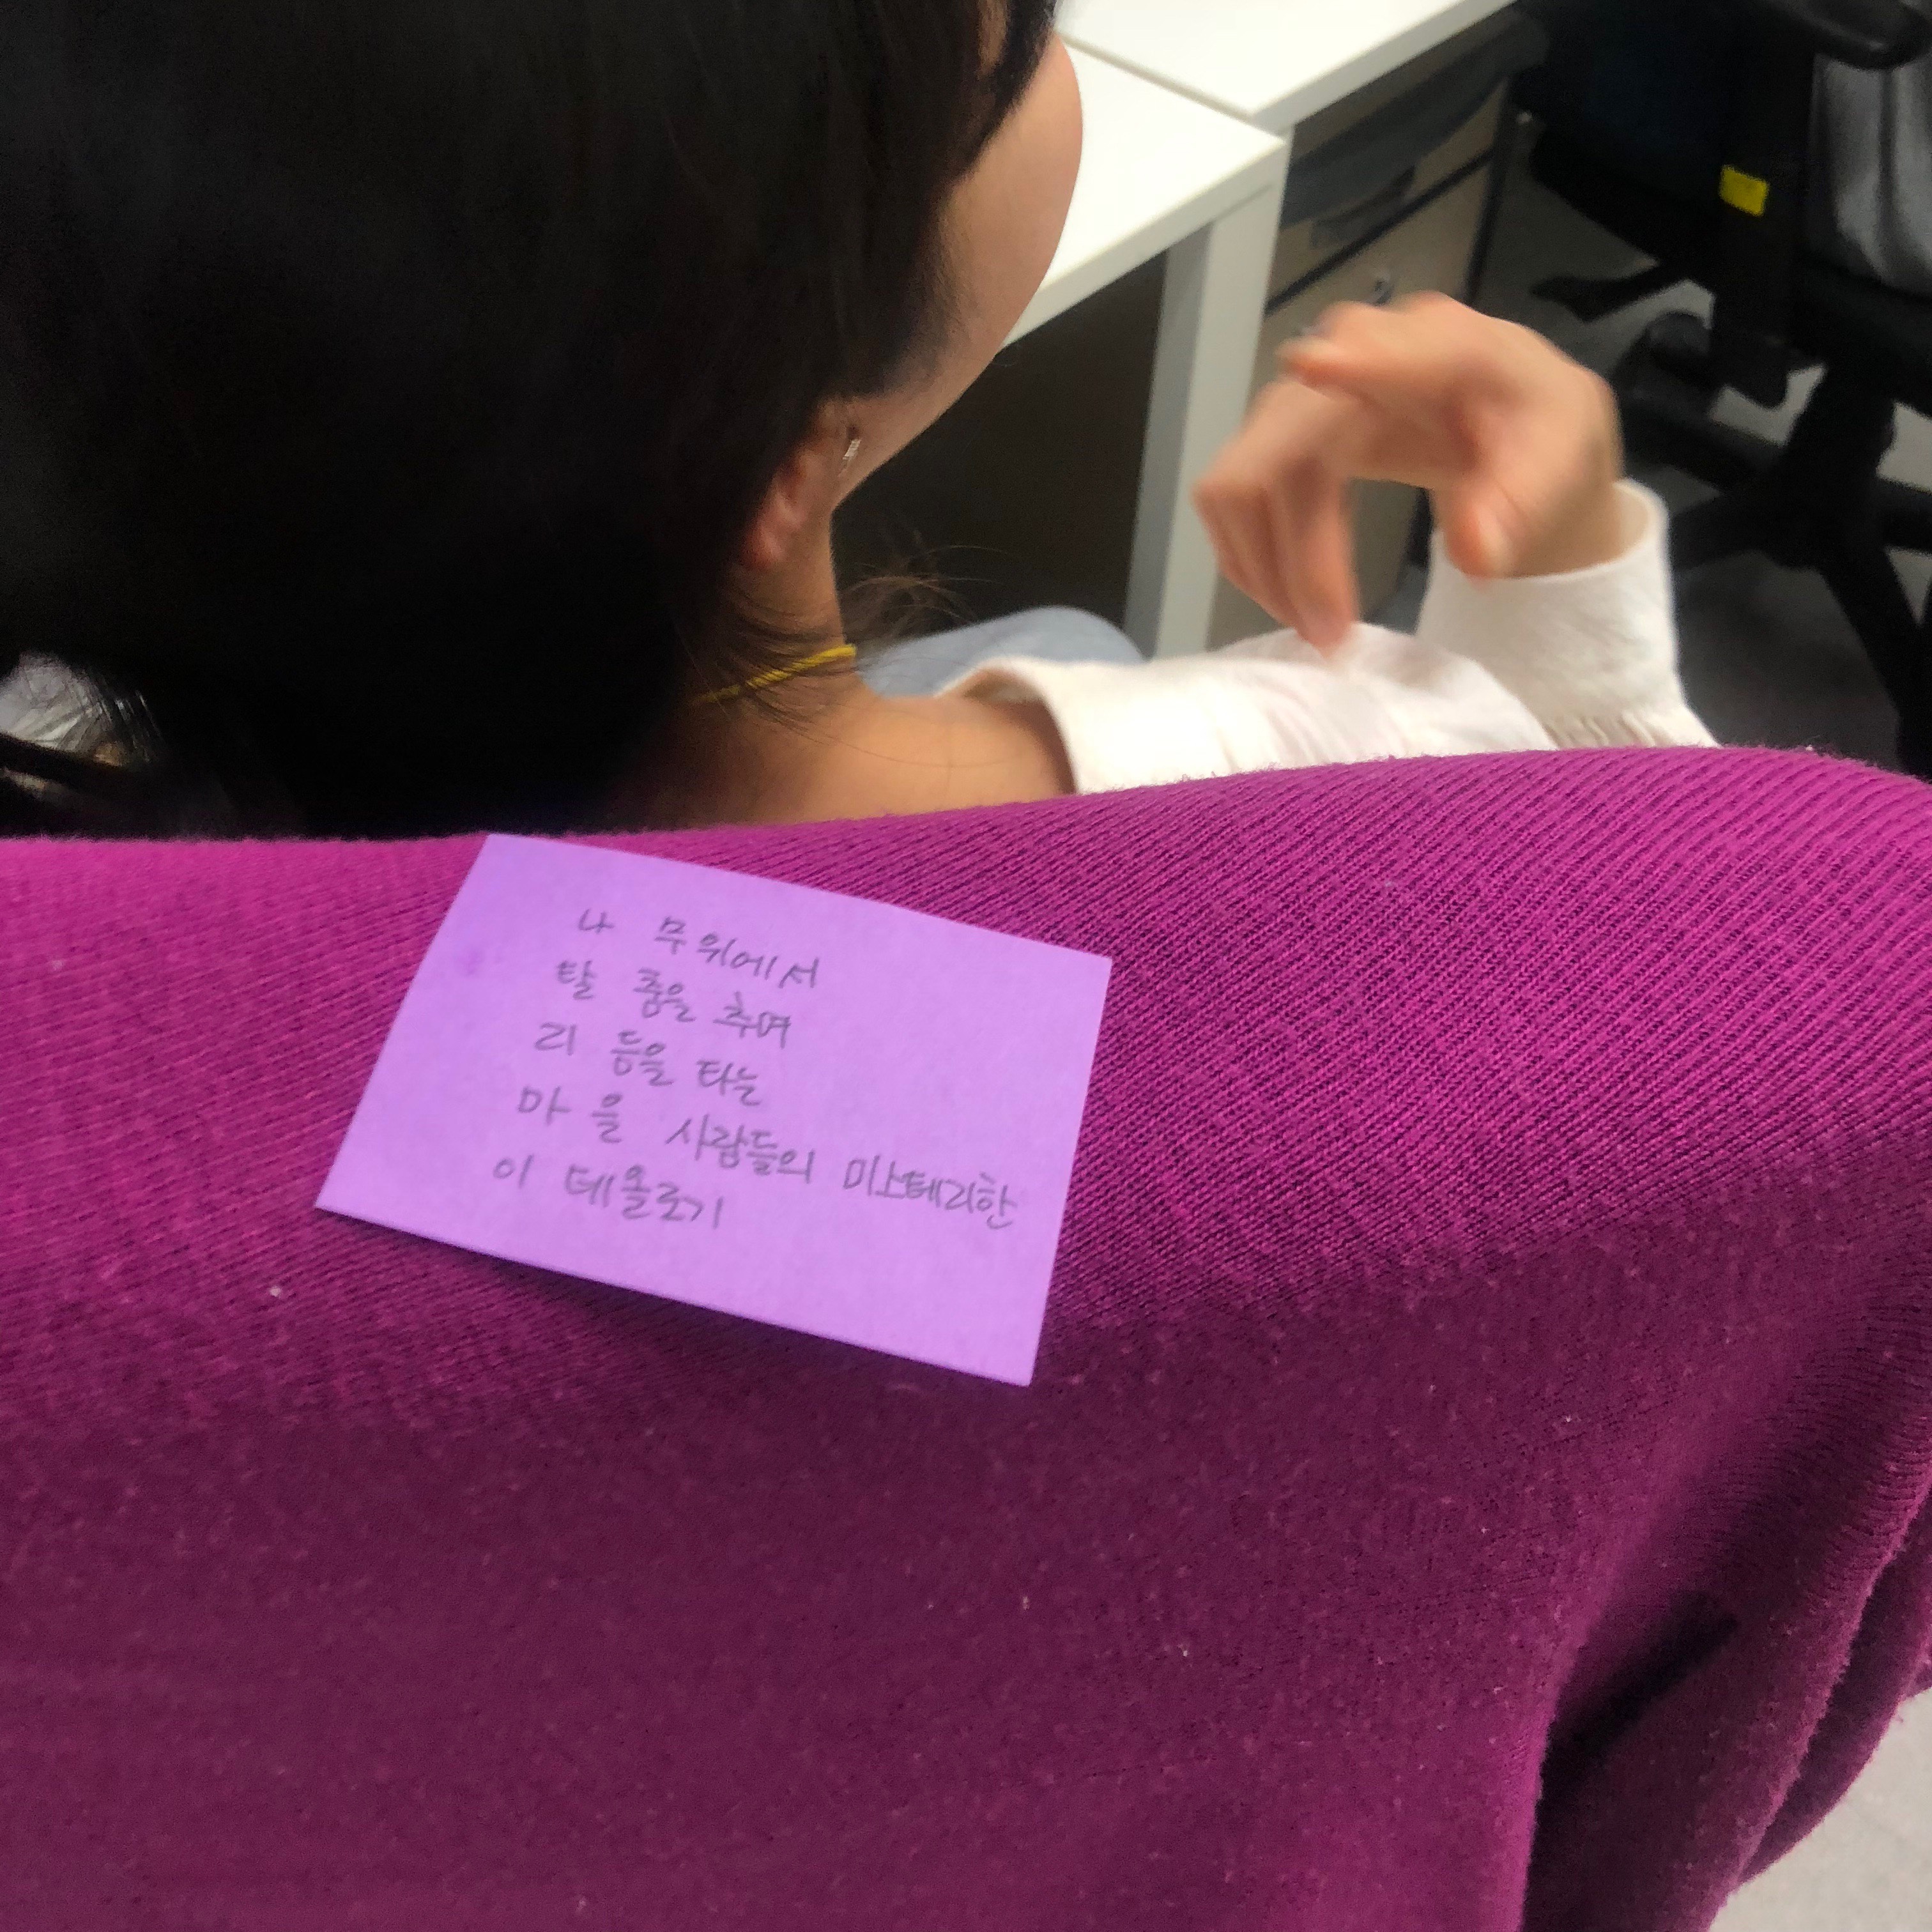 나 무위에서
탈 춤을 추며
리 듬을 타는
마 을 사람들의 미스테리한
이 테올로기